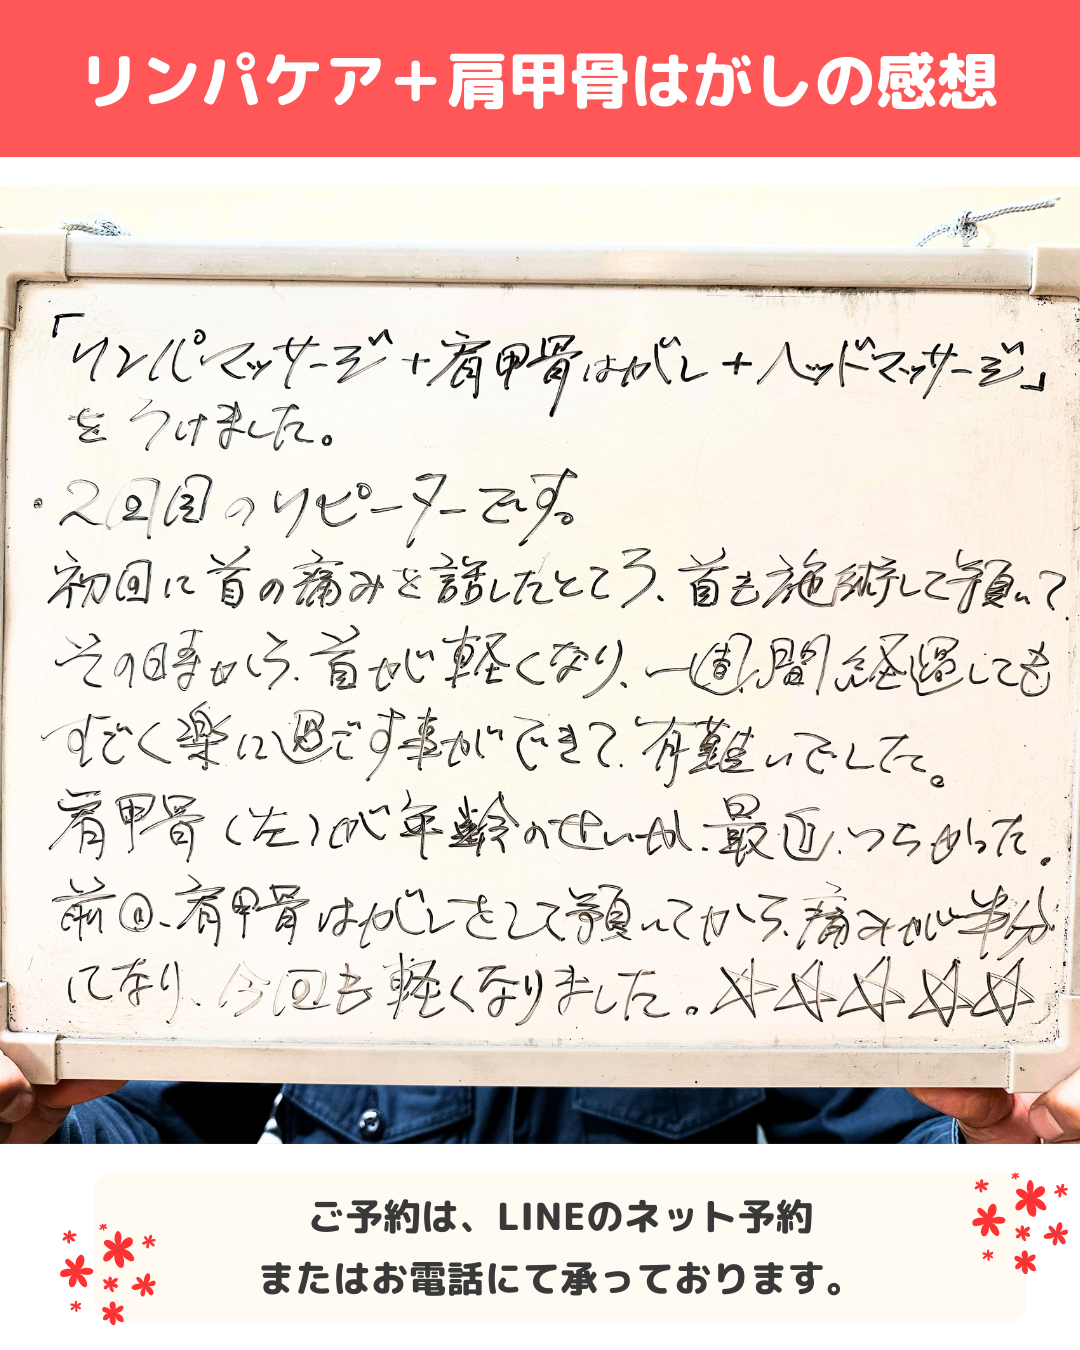 リンパケア＋肩甲骨はがしの感想
「リンパマッサージ＋肩甲骨はがし＋ヘッドマッサージ」
をうけました。
・2回目のリピーターです。
初回に首の痛みを話したところ、首も施術して頂いて、
その時から、首が軽くなり、一週間経過しても
すごく楽に過ごす事ができて、有難いでした。
肩甲骨（左）が年齢のせいか、最近、つらかった。
前回、肩甲骨はがしをして頂いてから、痛みが半分
になり、今回も軽くなりました。☆☆☆☆☆
ご予約は、LINEのネット予約
またはお電話にて承っております。